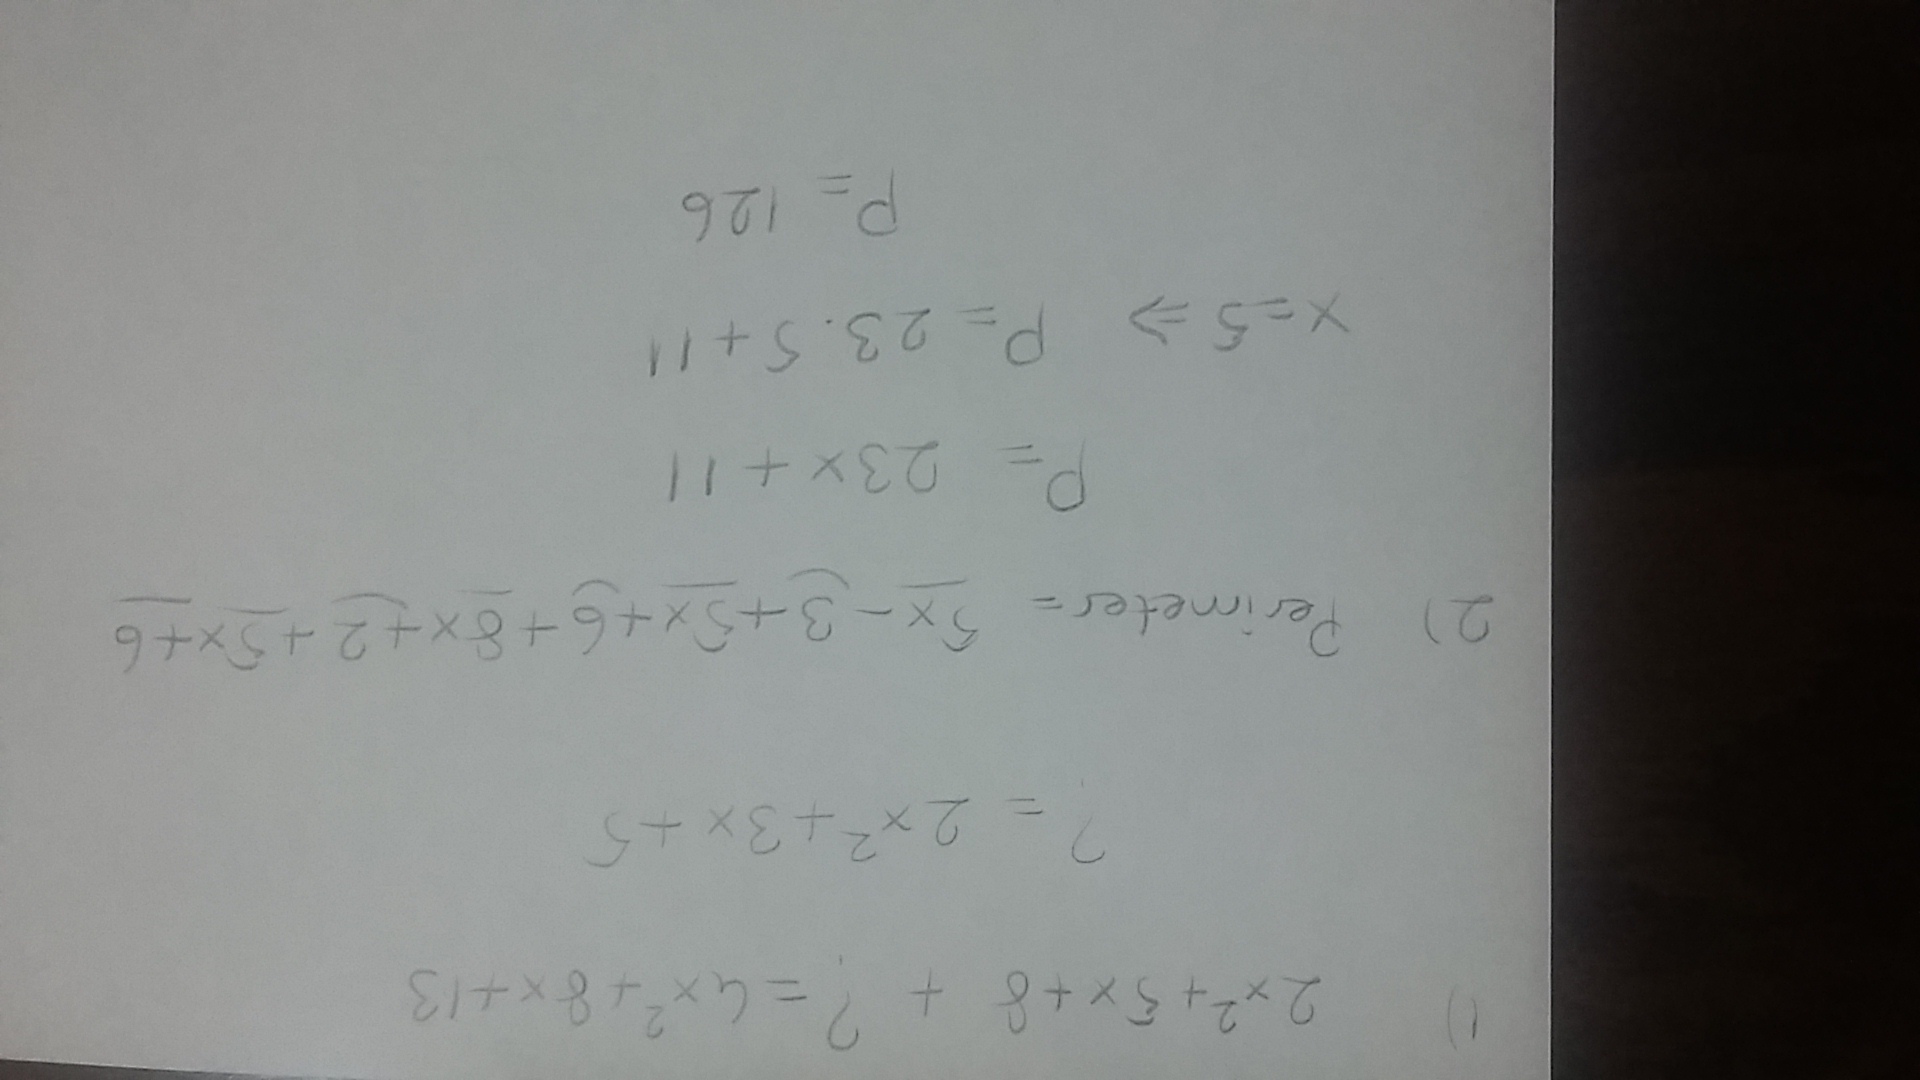 1) 2x²+5x+8 + ? = 4x²+8x+13
? = 2x²+3x+5
2) Perimeter = 5x-3+5x+6+8x+2+5x+6
P= 23x+11
x=5 ⇒ P= 23.5+11
P= 126